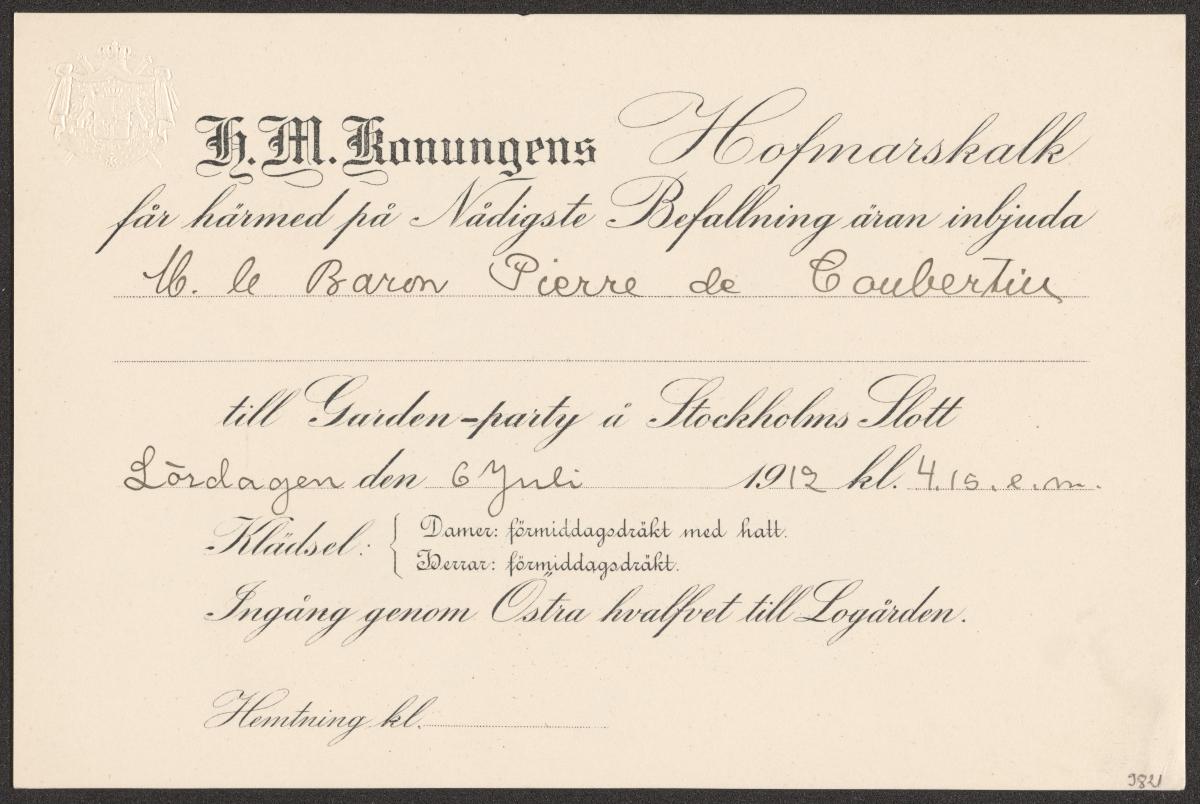 H. M. Konungens Hofmarskalk
får härmed på Nådigste Befallning äran inbjuda
M. le Baron Pierre de Coubertin
till Garden-party å Stockholms Slott
Lördagen den 6 Juli 1912 kl. 4.15. e. m.
Klädsel: { Damer: förmiddagsdräkt med hatt.
Herrar: förmiddagsdräkt.
Ingång genom Östra hvalfvet till Logården.
Hemtning kl.